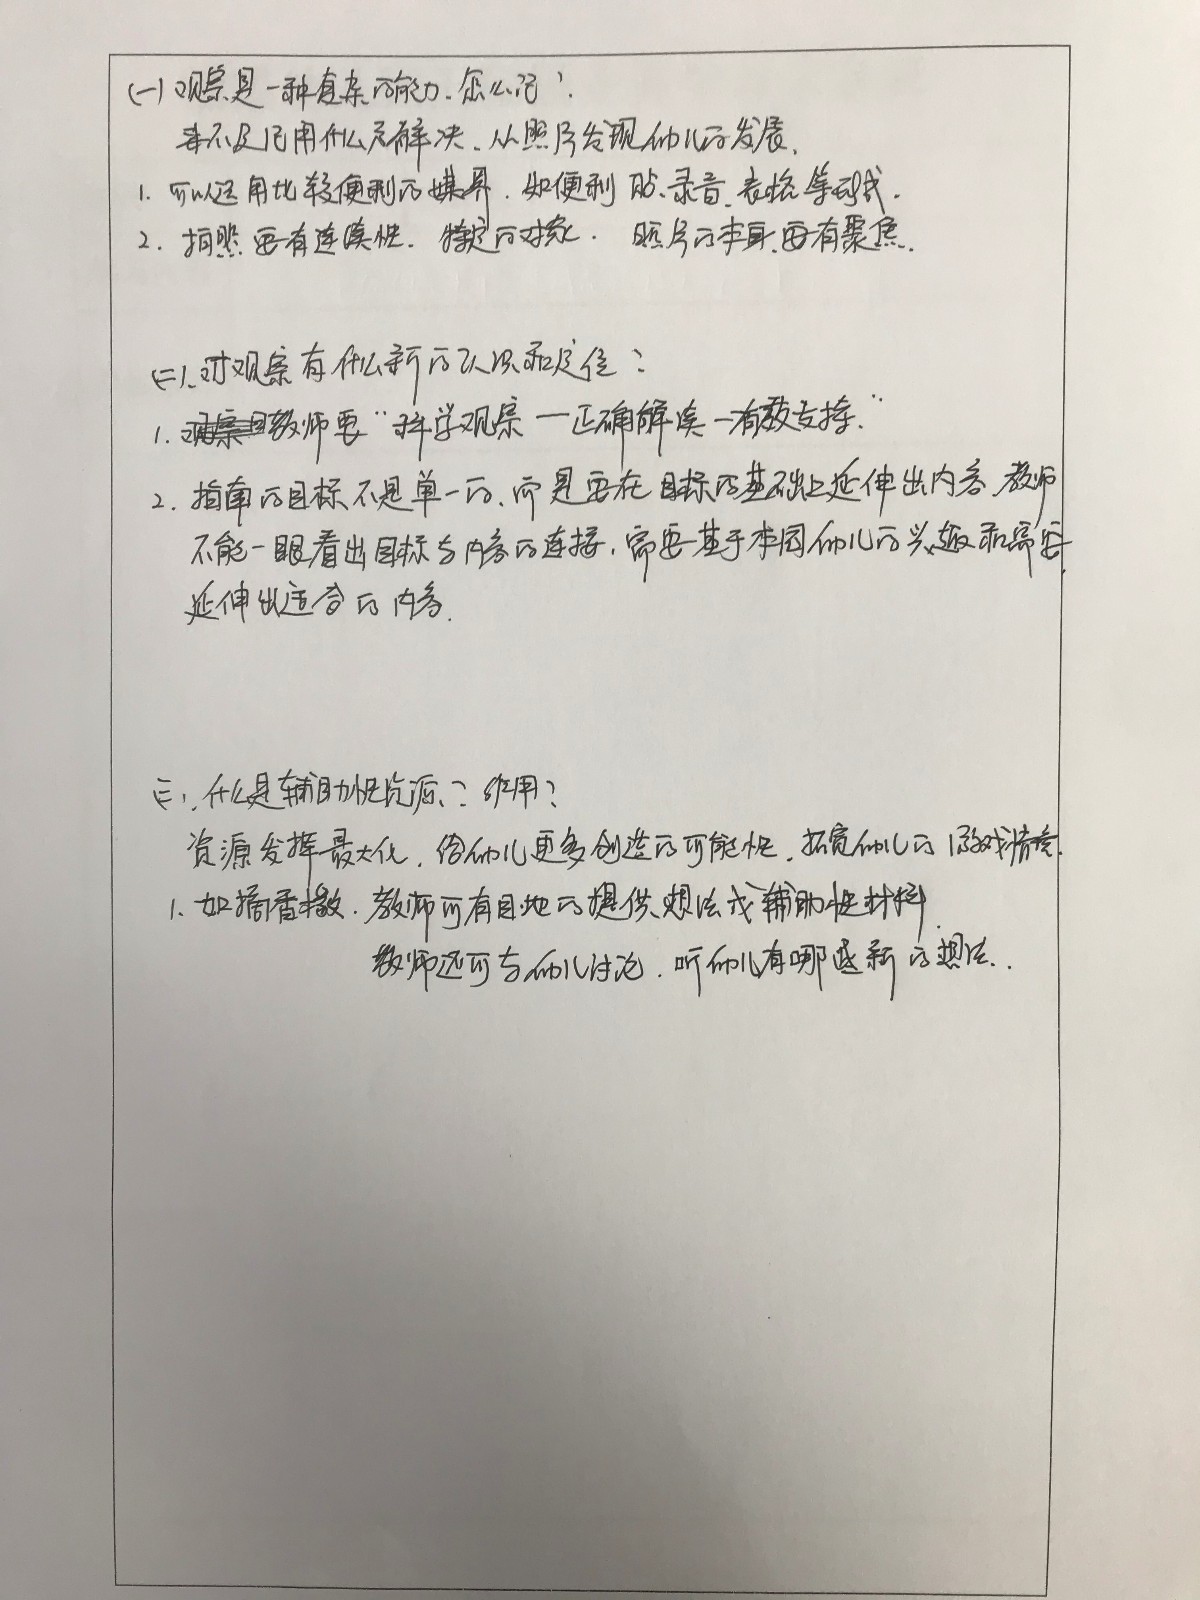 (一)观察是一种复杂的能力、怎么记?
来不及记用什么方解决、从照片发现幼儿的发展.
1. 可以运用比较便利的媒界.如便利贴、录音、表格等形式.
2. 拍照要有连续性. 特定的对象. 照片的本身要有聚焦.
(二)、对观察有什么新的认识和定位?
1. 教师要“科学观察—正确解读—有效支持.”
2. 指南的目标不是单一的、而是要在目标的基础上延伸出内容.教师
不能一眼看出目标与内容的连接,需要基于本园幼儿的兴趣和需要,
延伸出适合的内容.
(三)、什么是辅助性资源、? 作用?
资源发挥最大化,给幼儿更多创造的可能性,拓宽幼儿的游戏情境.
1. 如摘香橼. 教师可有目地的提供、想法或辅助性材料
教师还可与幼儿讨论.听幼儿有哪些新的想法..